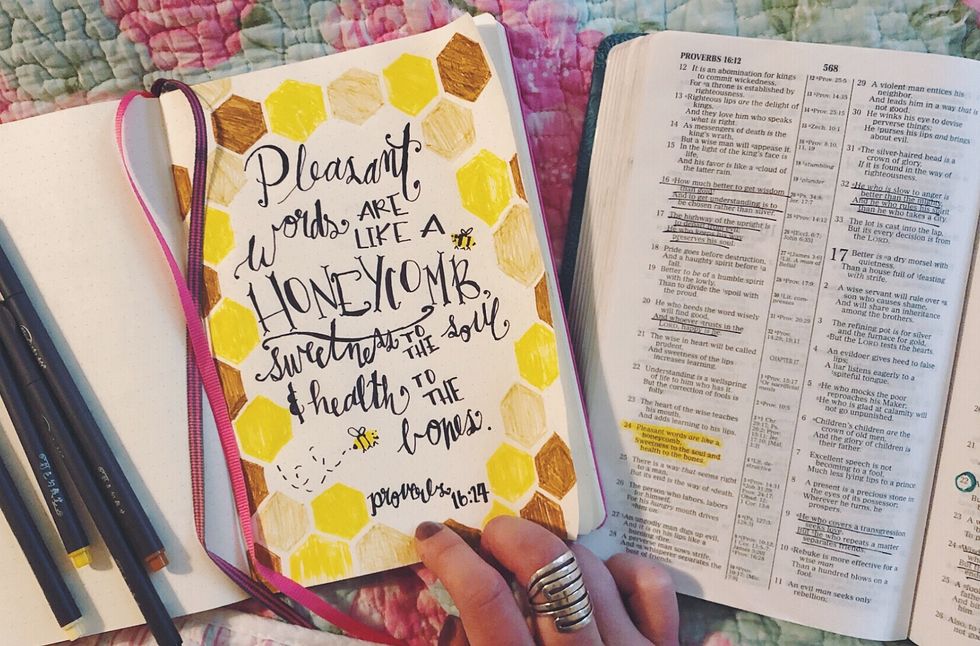 Pleasant
Words ARE
LIKE A
HONEYCOMB,
sweetness TO THE soul
& health TO THE
bones.
proverbs 16:24
PROVERBS 16:12
568
12 It is an abomination for kings
to commit wickedness,
For a throne is established by
righteousness.
13 Righteous lips are the delight of
kings,
And they love him who speaks
what is right.
14 As messengers of death is the
king's wrath,
But a wise man will appease it.
15 In the light of the king's face is
life,
And his favor is like a cloud of
the latter rain.
16 How much better to get wisdom
than gold!
And to get understanding is to
be chosen rather than silver.
17 The highway of the upright is
to depart from evil;
He who keeps his way
preserves his soul.
18 Pride goes before destruction,
And a haughty spirit before a
fall.
19 Better to be of a humble spirit
with the lowly,
Than to divide the spoil with
the proud.
20 He who heeds the word wisely
will find good,
And whoever trusts in the
LORD, happy is he.
21 The wise in heart will be called
prudent,
And sweetness of the lips
increases learning.
22 Understanding is a wellspring
of life to him who has it.
But the correction of fools is
folly.
23 The heart of the wise teaches
his mouth,
And adds learning to his lips.
24 Pleasant words are like a
honeycomb,
Sweetness to the soul and
health to the bones.
25 There is a way that seems right
to a man,
But its end is the way of death.
26 The person who labors, labors
for himself,
For his hungry mouth drives
him on.
27 An ungodly man digs up evil,
And it is on his lips like a
burning fire.
28 A perverse man sows strife,
And a whisperer separates the
best of friends.
29 A violent man entices his
neighbor,
And leads him in a way that is
not good.
30 He winks his eye to devise
perverse things;
He purses his lips and brings
about evil.
31 The silver-haired head is a
crown of glory,
If it is found in the way of
righteousness.
32 He who is slow to anger is
better than the mighty,
And he who rules his spirit
than he who takes a city.
33 The lot is cast into the lap,
But its every decision is from
the LORD.
17 Better is a dry morsel with
quietness,
Than a house full of feasting
with strife.
2 A wise servant will rule over a
son who causes shame,
And will share an inheritance
among the brothers.
3 The refining pot is for silver
and the furnace for gold,
But the LORD tests the hearts.
4 An evildoer gives heed to false
lips;
A liar listens eagerly to a
spiteful tongue.
5 He who mocks the poor
reproaches his Maker;
He who is glad at calamity will
not go unpunished.
6 Children's children are the
crown of old men,
And the glory of children is
their father.
7 Excellent speech is not
becoming to a fool,
Much less lying lips to a prince.
8 A present is a precious stone in
the eyes of its possessor;
Wherever he turns, he
prospers.
9 He who covers a transgression
seeks love,
But he who repeats a matter
separates friends.
10 Rebuke is more effective for a
wise man
Than a hundred blows on a
fool.
11 An evil man seeks only
rebellion;